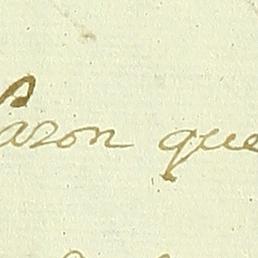 razon que